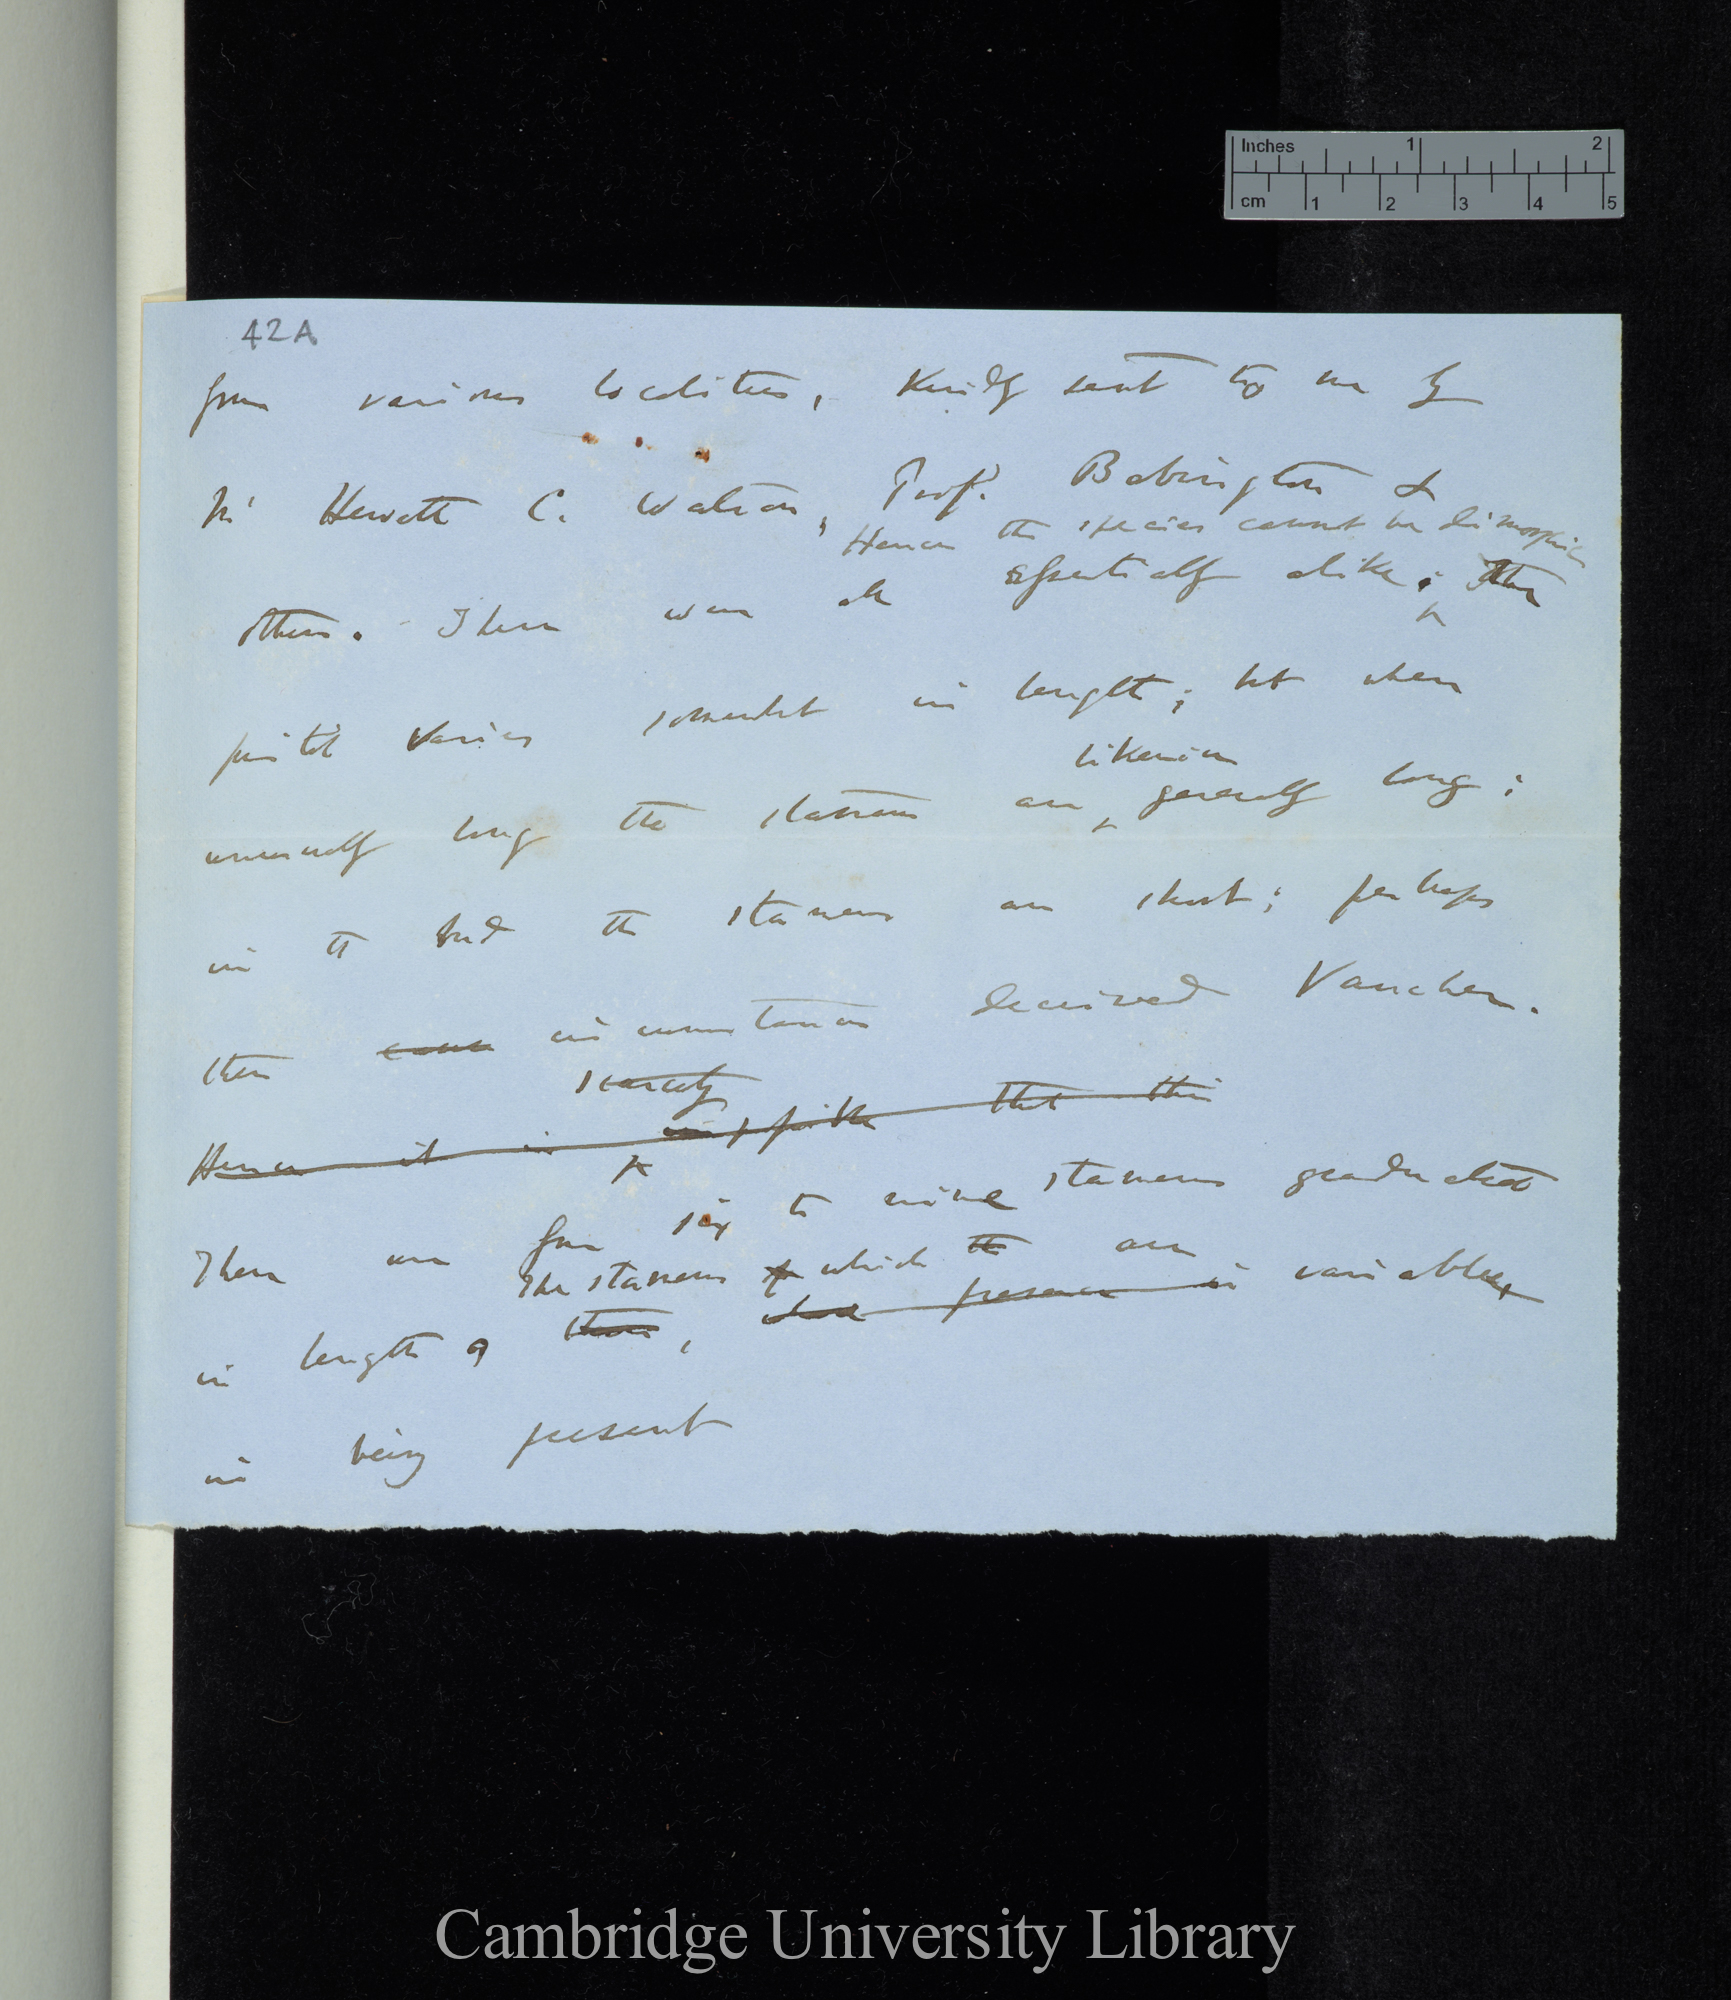 Inches 1 2
cm 1 2 3 4 5
42A
from various localities, kindly sent to me by
Mr Hewett C. Watson, Prof. Babington &
Hence the species cannot be dimorphic
others. These were all essentially alike; The
pistil varies somewhat in length; but when
likewise
unusually long the stamens are generally long;
in the bud the stamens are short; perhaps
these circumstances deceived Vaucher.
scarcely
Hence it is possible that this
There are from six to nine stamens graduated
The stamens which the are
in length, these, whose presence is variable
in being present
Cambridge University Library